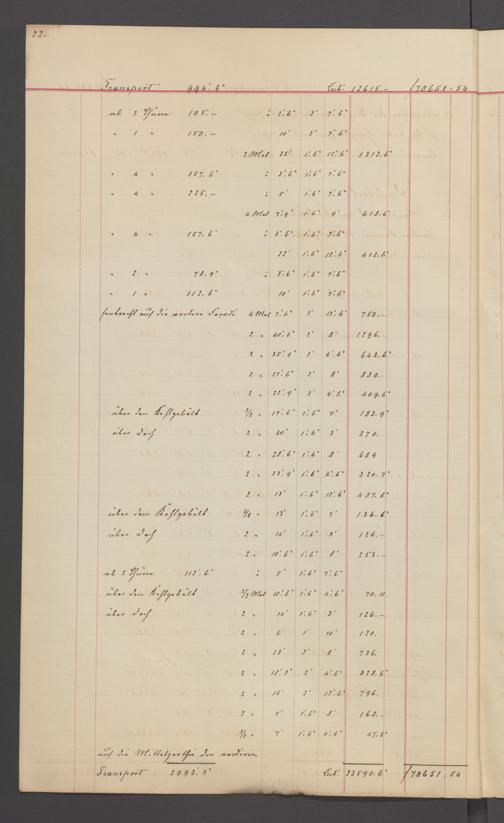 22.
Transport 994'.6" Cub. 12615.- 70651.54
ab 2 Thüren 105.- : 3'.6" 2' 7'.6"
" 1 " 150.- 10' 2' 7'.6"
2 Mal 35' 1'.6" 12'.6" 1312.6"
" 4 " 157.6" : 3'.6" 1'.6" 7'.6"
" 4 " 225.- : 5' 1'.6" 7'.6"
4 Mal 7'.9" 1'.6" 9' 418.6"
" 4 " 157.6" : 3'.6" 1'.6" 7'.6"
22' 1'.6" 12'.6" 412.6"
" 2 " 78.9" : 3'.6" 1'.6" 7'.6"
" 1 " 112.6" 10' 1'.6" 7'.6"
senkrecht auf die vordere Façade 4 Mal 7'.6" 2' 12'.6" 750.-
2 " 40'.6" 2' 8' 1296.-
2 " 35'.9" 2' 4'.6" 643.6"
2 " 27'.6" 2' 8' 880.-
2 " 22'.9" 2' 4'.6" 409.6"
über dem Kehlgebält 2/2 " 17'.6" 1'.6" 7' 183.9"
über Dach 2 " 30' 1'.6" 3' 270.
2 " 28'.6" 1'.6" 8' 684
2 " 23'.9" 1'.6" 4'.6" 320.7"
2 " 13' 1'.6" 12'.6" 487.6"
über dem Kehlgebält 2/2 " 13' 1'.6" 7' 136.6"
über Dach 2 " 14' 1'.6" 3' 126.-
2 " 10'.6" 1'.6" 8' 252.-
ab 2 Thüren 112'.6" : 5' 1'.6" 7'.6"
über dem Kehlgebält 2/2 Mal 10'.6" 1'.6" 4'.6" 70.11
über Dach 2 " 14' 1'.6" 3' 126.-
2 " 6' 1' 10' 120.
2 " 23' 2' 8' 736.
2 " 18'.3" 2' 4'.6" 328.6"
2 " 16' 2' 12'.6" 796.
2 " 7' 1'.6" 8' 168.-
2/2 " 7' 1'.6" 4'.6" 47.3"
auf die Mittelparthie der vorderen
Transport 2093'.3" Cub. 23590.6" 70651.54